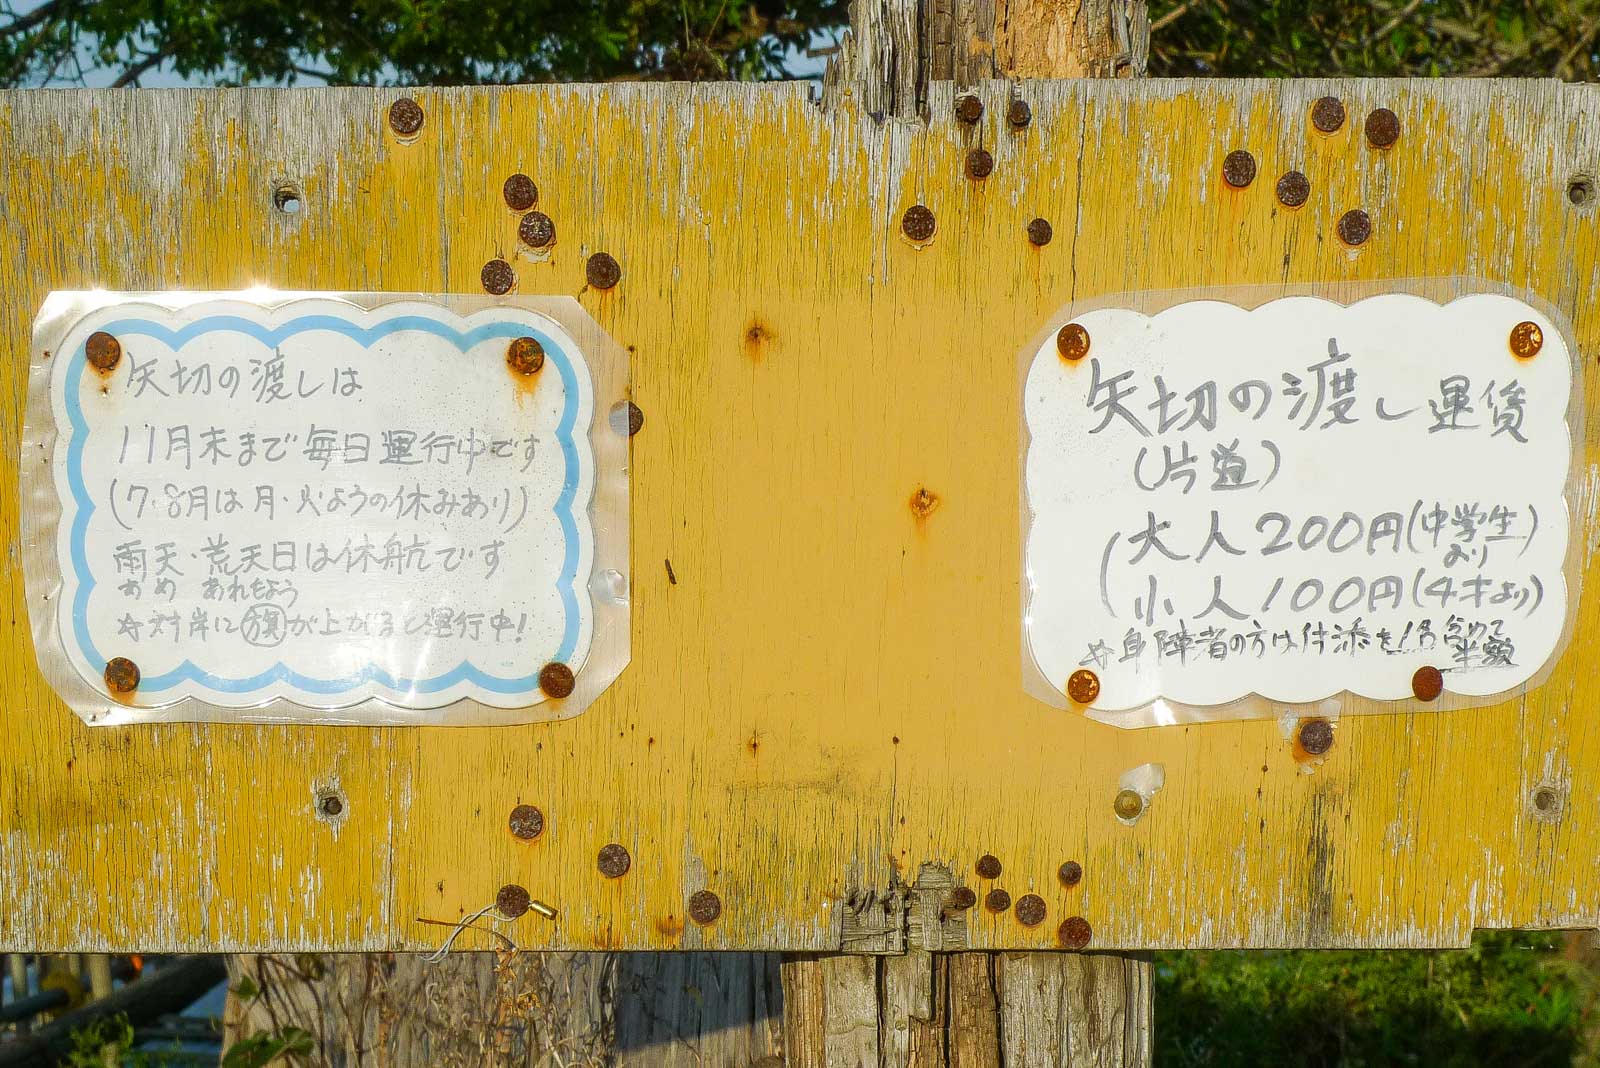 矢切の渡しは
11月末まで毎日運行中です
(7・8月は月・火ようの休みあり)
雨天・荒天日は休航です
あめ あれもよう
☆対岸に旗が上がると運行中!
矢切の渡し運賃
(片道)
大人200円(中学生より)
小人100円(4才より)
☆身障者の方は付添を1名含めて半額